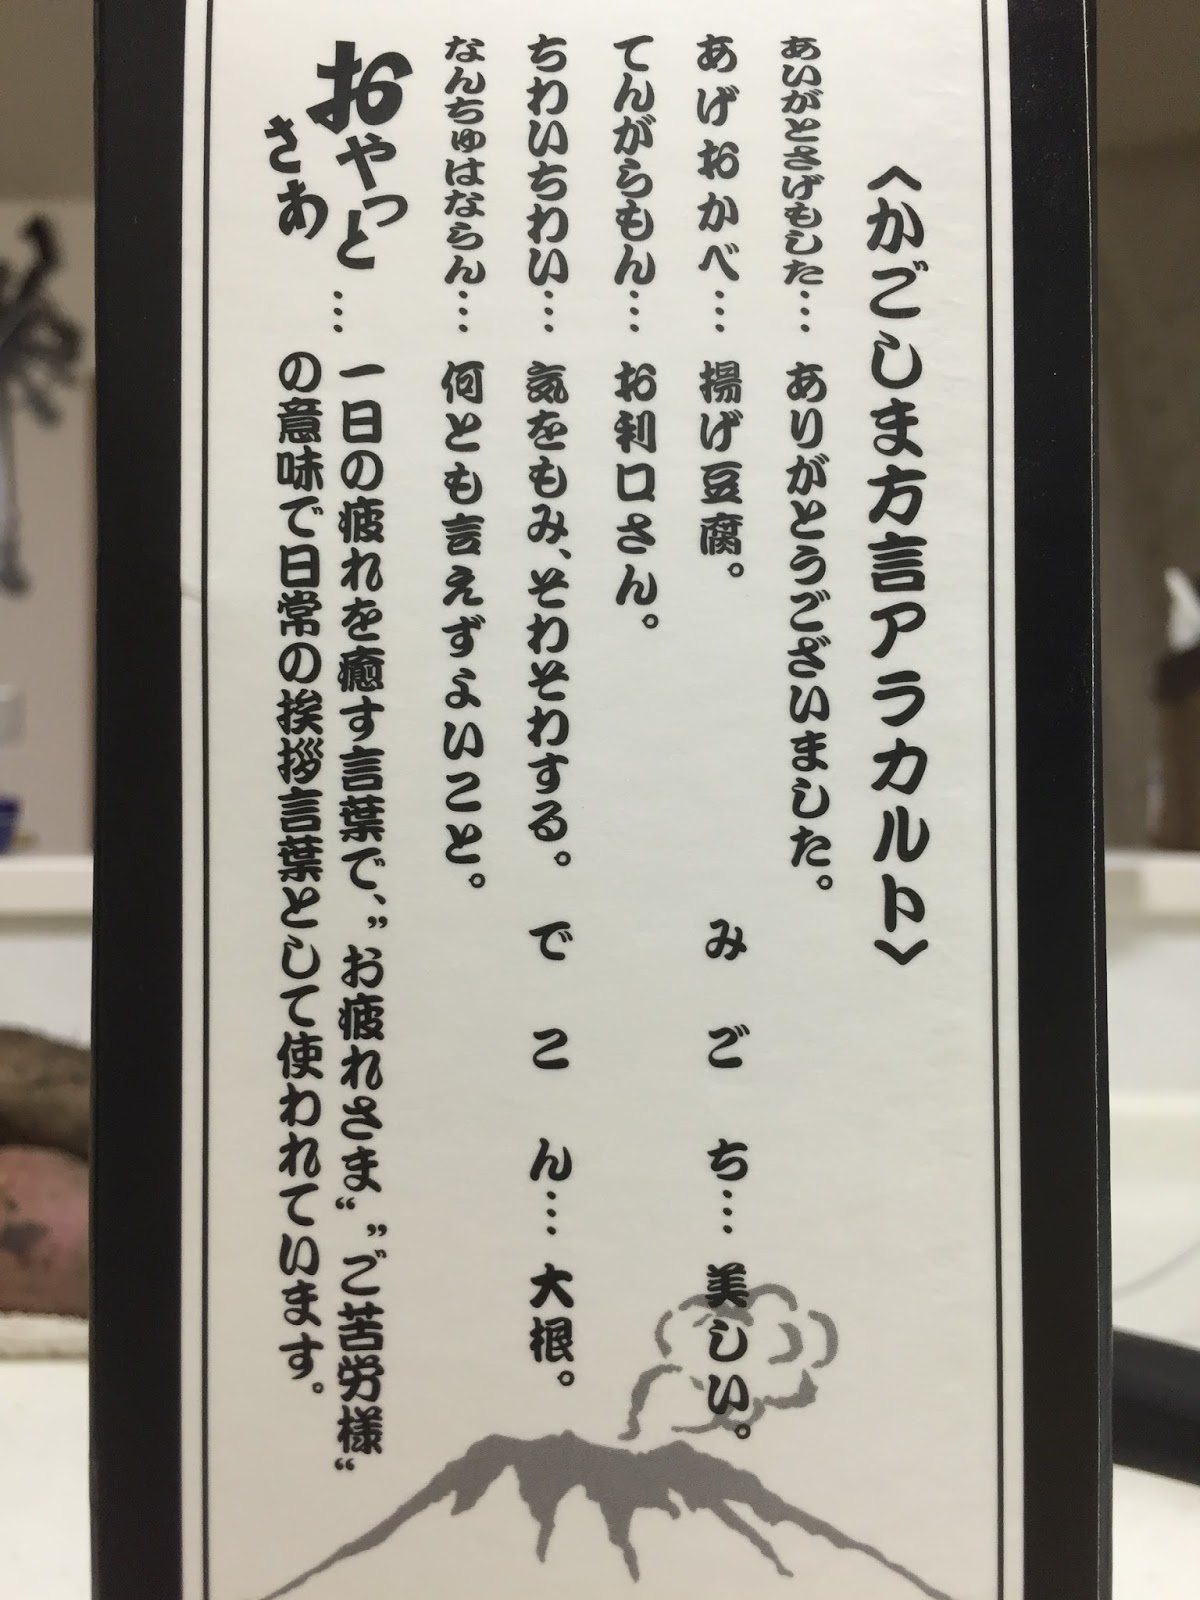 〈かごしま方言アラカルト〉
あいがとさげもした… ありがとうございました。
あげおかべ… 揚げ豆腐。
みごち… 美しい。
てんがらもん… お利口さん。
ちわいちわい… 気をもみ、そわそわする。
でこん… 大根。
なんちゅはならん… 何とも言えずよいこと。
おやっとさあ… 一日の疲れを癒す言葉で、”お疲れさま“ ”ご苦労様“
の意味で日常の挨拶言葉として使われています。